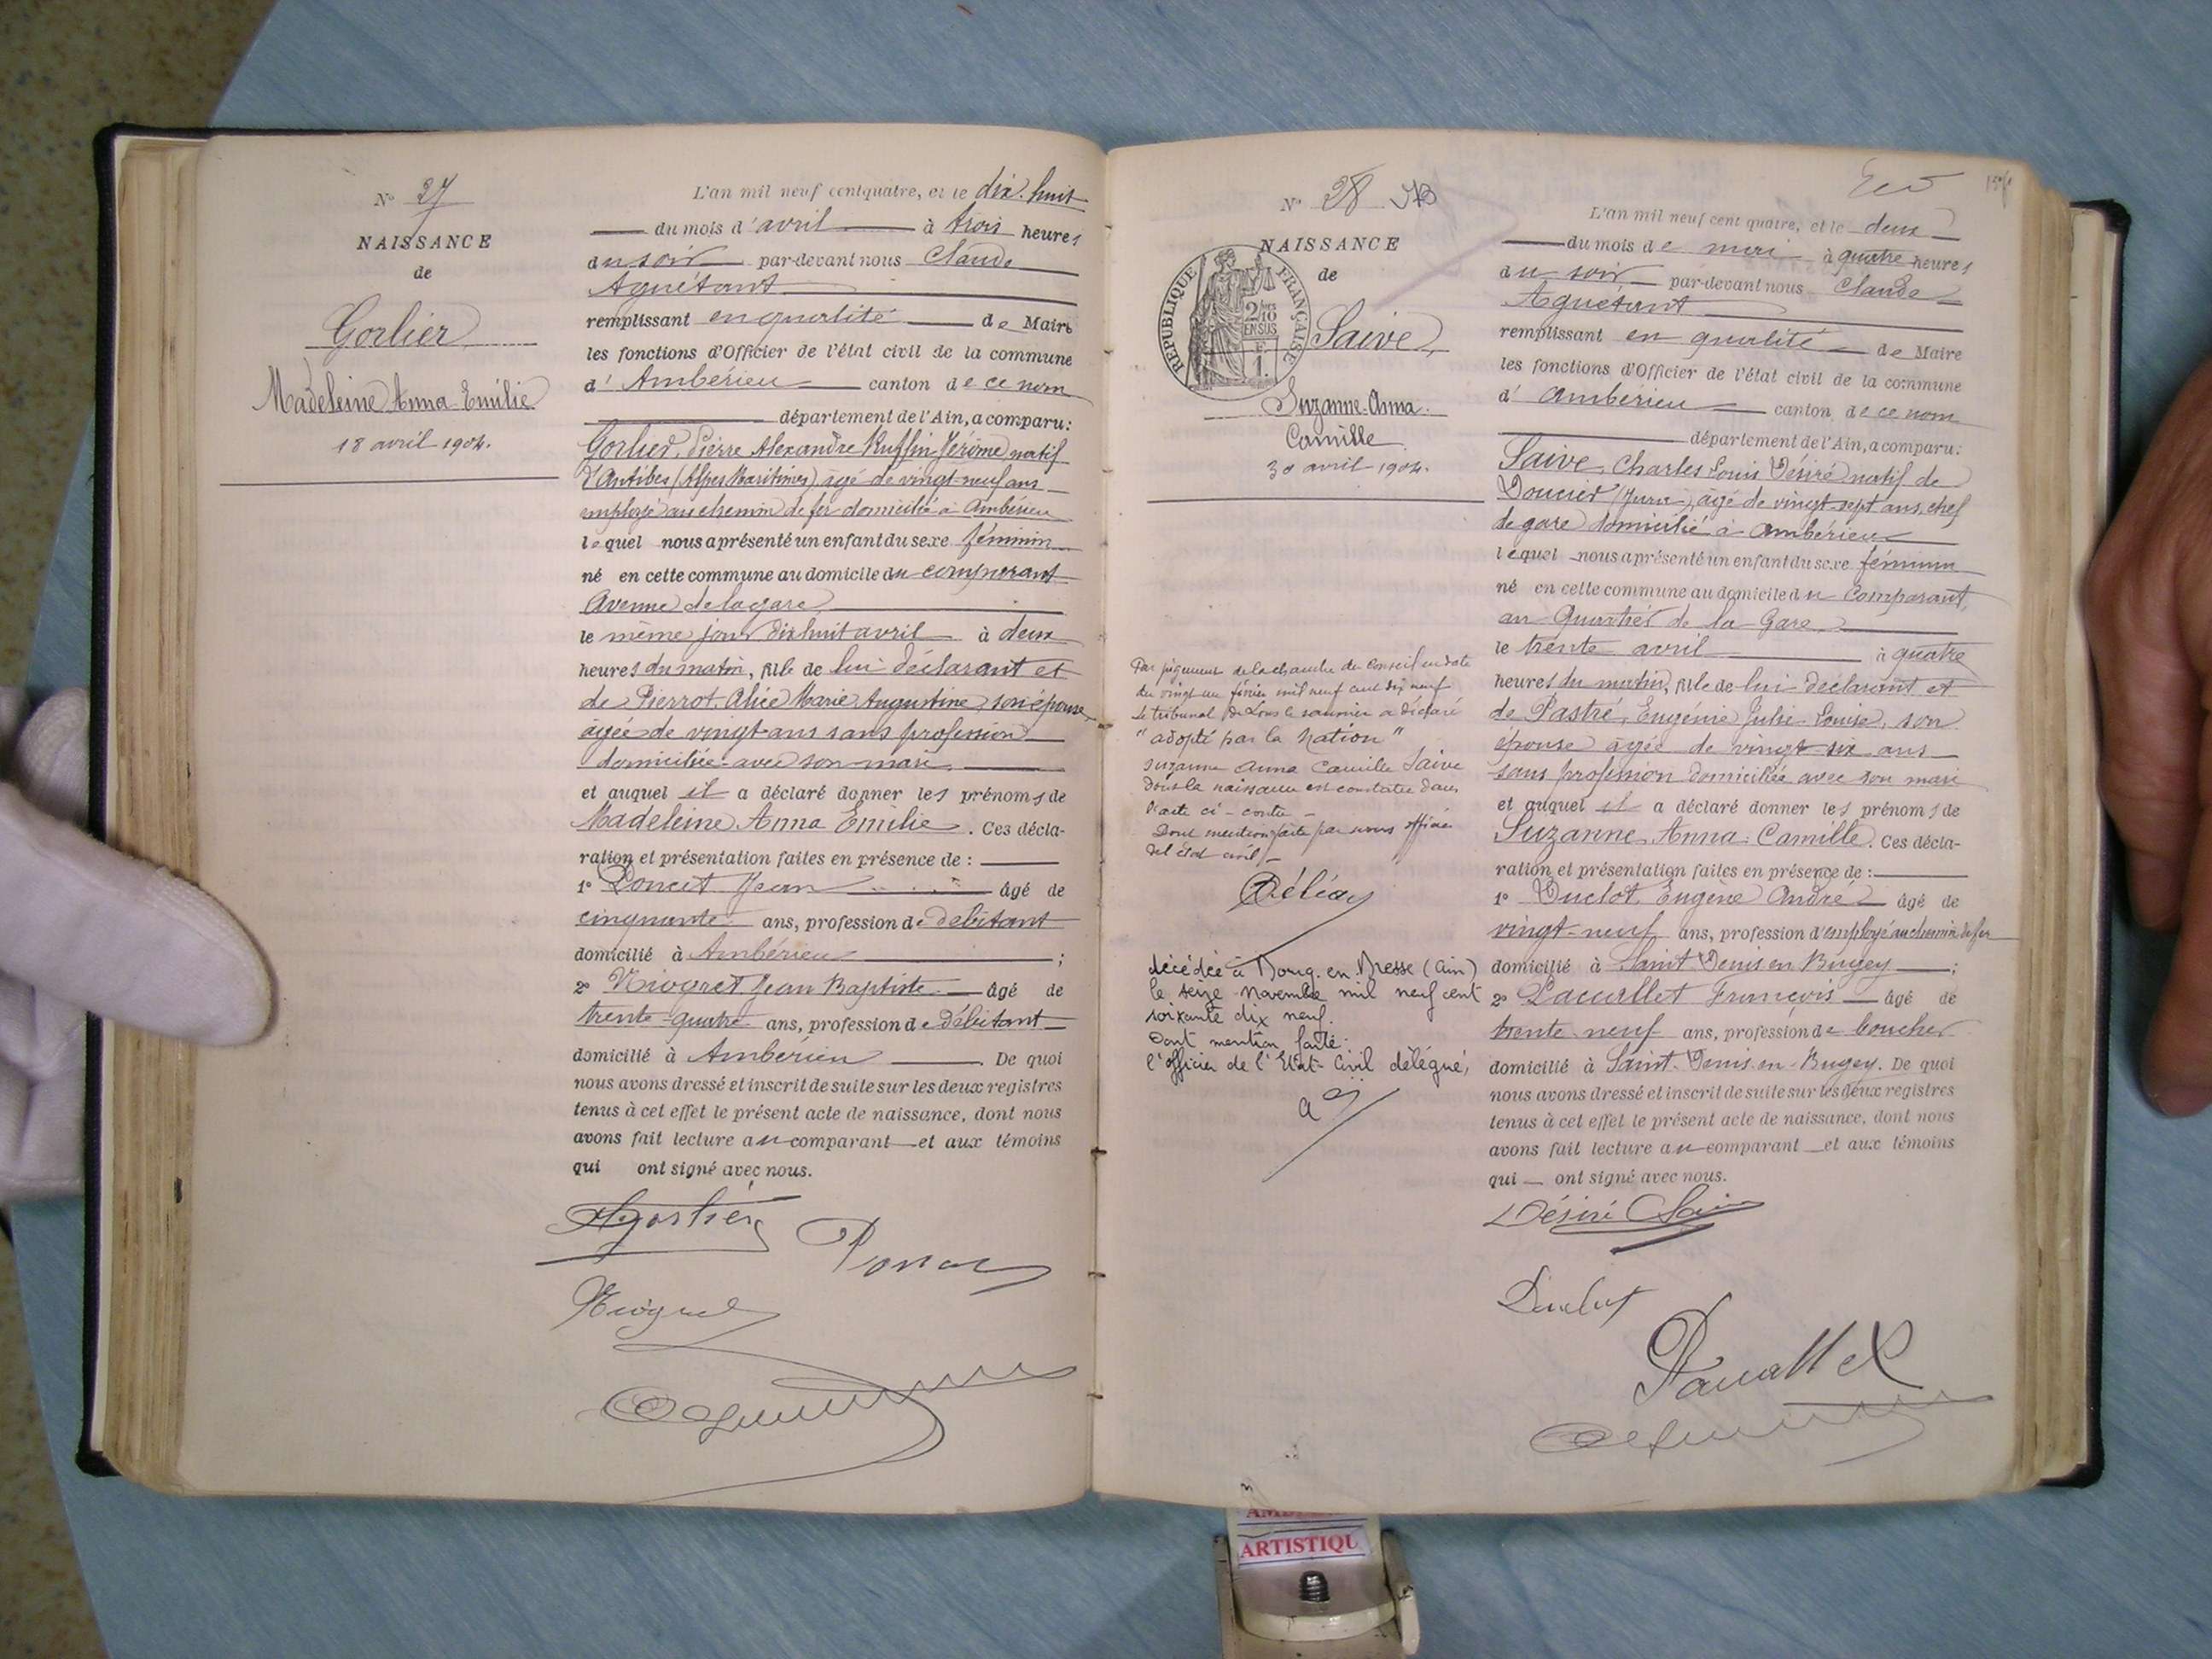 N° 27
NAISSANCE
de
Gorlier
Madeleine Anna Emilie
18 avril 1904.
L'an mil neuf cent quatre, et le dix-huit
du mois d'avril à trois heures
du soir par-devant nous Claude
Aguétant
remplissant en qualité de Maire
les fonctions d'Officier de l'état civil de la commune
d'Ambérieu canton de ce nom
département de l'Ain, a comparu:
Gorlier, Pierre Alexandre Ruffin Jérôme natif
d'Antibes (Alpes Maritimes) âgé de vingt-neuf ans
employé au chemin de fer domicilié à Ambérieu
lequel nous a présenté un enfant du sexe féminin
né en cette commune au domicile du comparant
Avenue de la gare
le même jour dix huit avril à deux
heures du matin, fille de lui déclarant et
de Pierrot, Alice Marie Augustine, son épouse
âgée de vingt ans sans profession
domiciliée avec son mari
et auquel il a déclaré donner les prénoms de
Madeleine Anna Emilie. Ces décla-
ration et présentation faites en présence de :
1° Poncet Jean âgé de
cinquante ans, profession de débitant
domicilié à Ambérieu ;
2° Niogret Jean Baptiste âgé de
trente-quatre ans, profession de débitant
domicilié à Ambérieu. De quoi
nous avons dressé et inscrit de suite sur les deux registres
tenus à cet effet le présent acte de naissance, dont nous
avons fait lecture au comparant et aux témoins
qui ont signé avec nous.
Gorlier
Niogret
N° 28
NAISSANCE
de
REPUBLIQUE FRANÇAISE
2/10 EN SUS
Saive
Suzanne-Anna
Camille
30 avril 1904.
Par jugement de la chambre du Conseil en date
du vingt un février mil neuf cent dix neuf
le tribunal de Lons le saunier a déclaré
"adopté par la Nation"
Suzanne Anna Camille Saive
dont la naissance est constatée dans
l'acte ci-contre
Dont mention faite par nous officier
de l'état civil
décédée à Bourg-en-Bresse (Ain)
le seize novembre mil neuf cent
soixante dix neuf.
Dont mention faite.
l'officier de l'Etat-Civil délégué,
L'an mil neuf cent quatre, et le deux
du mois de mai à quatre heures
du soir par-devant nous Claude
Aguétant
remplissant en qualité de Maire
les fonctions d'Officier de l'état civil de la commune
d'Ambérieu canton de ce nom
département de l'Ain, a comparu:
Saive, Charles Louis Désiré natif de
Doucier (Jura), âgé de vingt-sept ans, chef
de gare domicilié à Ambérieu
lequel nous a présenté un enfant du sexe féminin
né en cette commune au domicile du comparant,
au Quartier de la Gare
le trente avril à quatre
heures du matin, fille de lui déclarant et
de Pastré, Eugénie Julie Louise, son
épouse âgée de vingt-six ans
sans profession domiciliée avec son mari
et auquel il a déclaré donner les prénoms de
Suzanne-Anna-Camille. Ces décla-
ration et présentation faites en présence de :
1° Duclot, Eugène André âgé de
vingt-neuf ans, profession d'employé au chemin de fer
domicilié à Saint Denis en Bugey ;
2° Pacallet François âgé de
trente-neuf ans, profession de boucher
domicilié à Saint-Denis-en-Bugey. De quoi
nous avons dressé et inscrit de suite sur les deux registres
tenus à cet effet le présent acte de naissance, dont nous
avons fait lecture au comparant et aux témoins
qui ont signé avec nous.
Désiré Saive
Duclot
ARTISTIQU